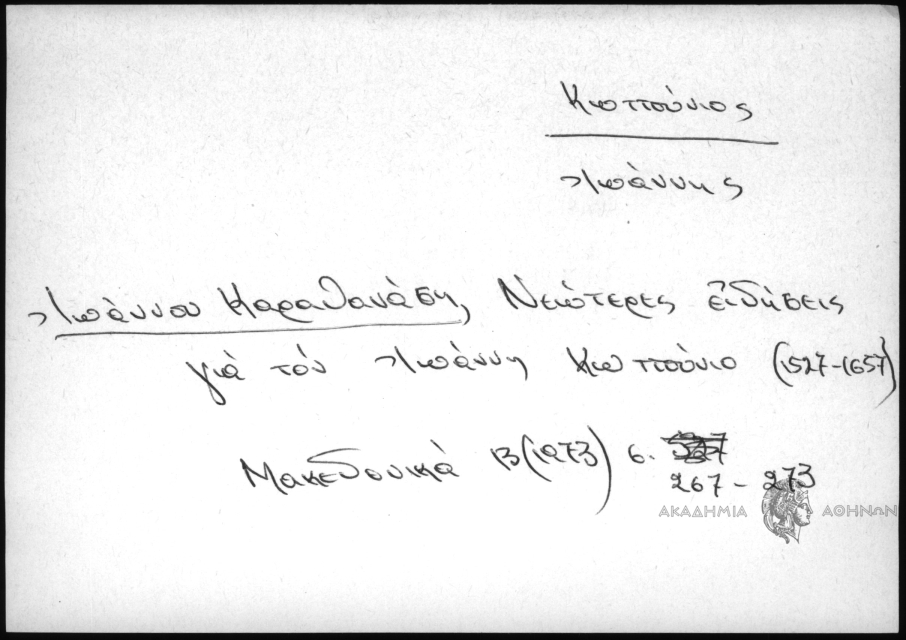 Κωττούνιος
Ἰωάννης
Ἰωάννου Καραθανάση, Νεώτερες εἰδήσεις
γιὰ τόν Ἰωάννη Κωττούνιο (1527-1657)
Μακεδονικά 13 (1973) σ.
267 - 273
ΑΚΑΔΗΜΙΑ ΑΘΗΝΩΝ